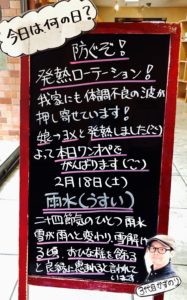 今日は何の日？
防ぐぞ！
発熱ローテーション！
我家にも体調不良の波が
押し寄せています！
娘っ子×と発熱しました(°°)
よって本日ワンオペで
がんばります(°°)
2月18日(土)
雨水(うすい)
二十四節気のひとつ 雨水
雪が雨へと変わり雪解け
る頃、おひな様を飾る
と良縁に恵まれると言われて
います
3代目かずのり